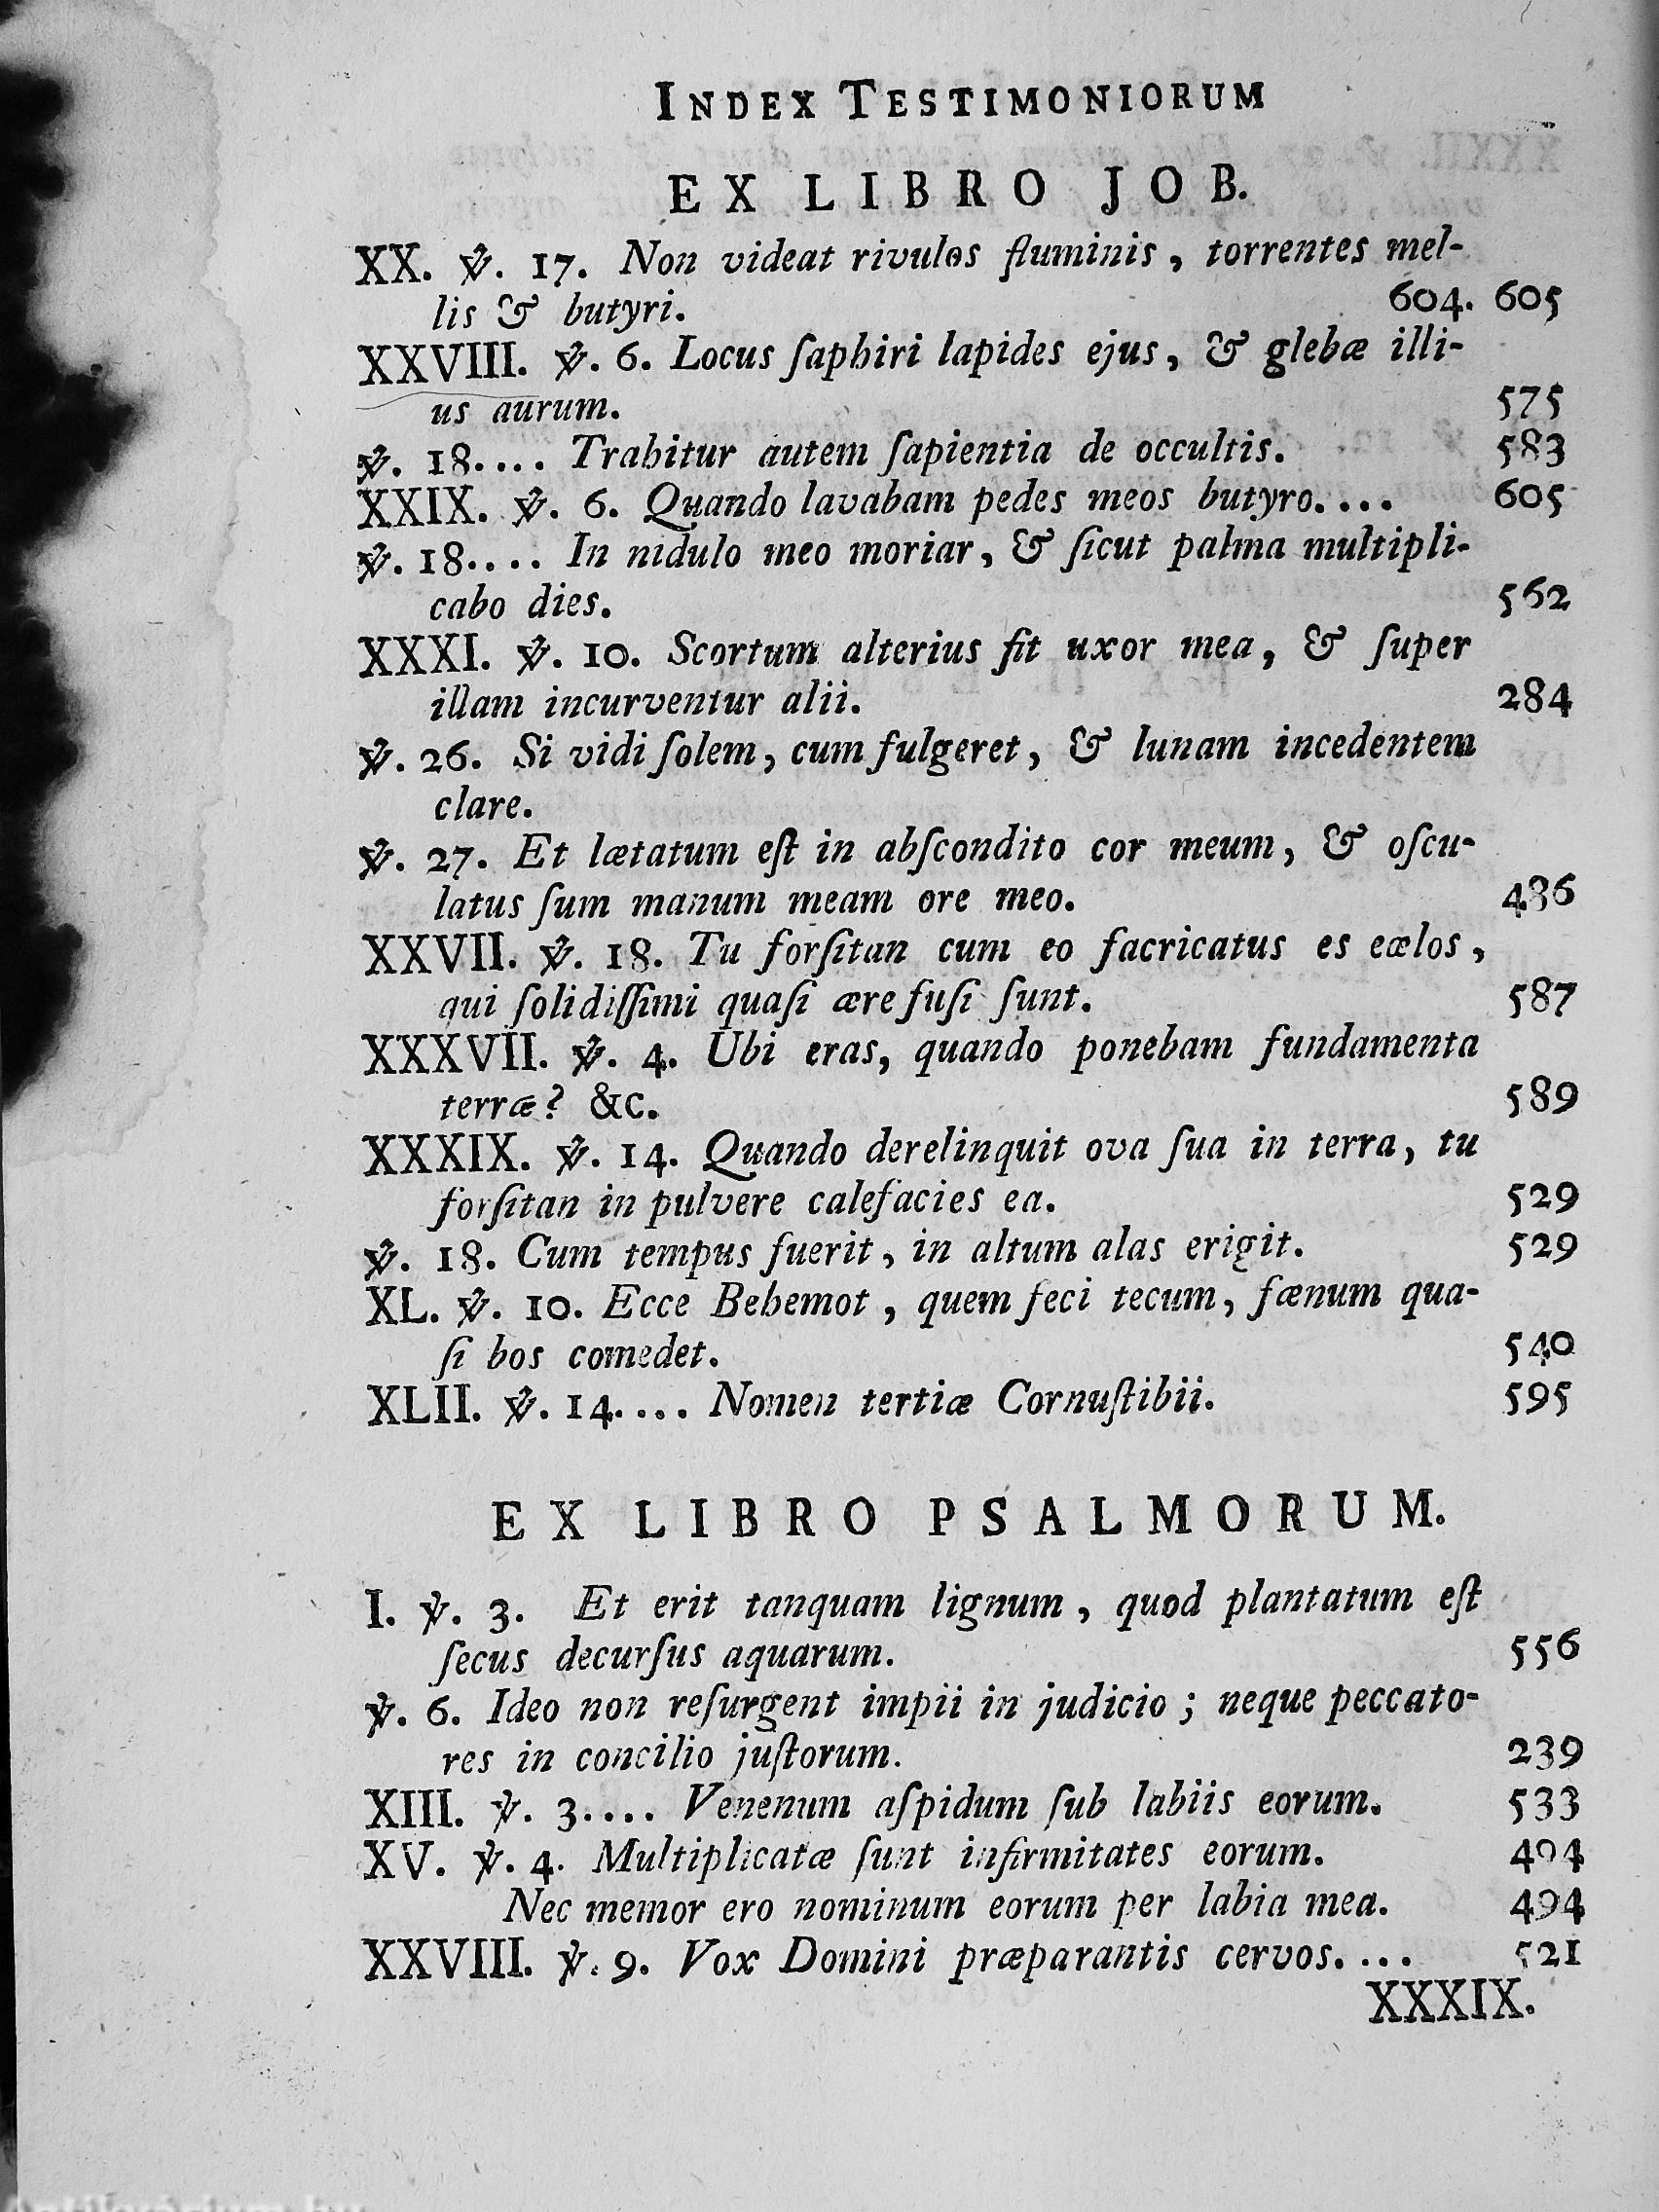 INDEX TESTIMONIORUM
EX LIBRO JOB.
XX. ℣. 17. Non videat rivulos fluminis, torrentes mel-
lis & butyri. 604. 605
XXVIII. ℣. 6. Locus ſaphiri lapides ejus, & glebæ illi-
us aurum. 575
℣. 18.... Trahitur autem ſapientia de occultis. 583
XXIX. ℣. 6. Quando lavabam pedes meos butyro.... 605
℣. 18.... In nidulo meo moriar, & ſicut palma multipli-
cabo dies. 562
XXXI. ℣. 10. Scortum alterius fit uxor mea, & ſuper
illam incurventur alii. 284
℣. 26. Si vidi ſolem, cum fulgeret, & lunam incedentem
clare.
℣. 27. Et lætatum eſt in abſcondito cor meum, & oſcu-
latus ſum manum meam ore meo. 486
XXVII. ℣. 18. Tu forſitan cum eo facricatus es eælos,
qui ſolidiſſimi quaſi ære fuſi ſunt. 587
XXXVII. ℣. 4. Ubi eras, quando ponebam fundamenta
terræ? &c. 589
XXXIX. ℣. 14. Quando derelinquit ova ſua in terra, tu
forſitan in pulvere calefacies ea. 529
℣. 18. Cum tempus fuerit, in altum alas erigit. 529
XL. ℣. 10. Ecce Behemot, quem feci tecum, fænum qua-
ſi bos comedet. 540
XLII. ℣. 14.... Nomen tertiæ Cornuſtibii. 595
EX LIBRO PSALMORUM.
I. ℣. 3. Et erit tanquam lignum, quod plantatum eſt
ſecus decurſus aquarum. 556
℣. 6. Ideo non reſurgent impii in judicio; neque peccato-
res in concilio juſtorum. 239
XIII. ℣. 3.... Venenum aſpidum ſub labiis eorum. 533
XV. ℣. 4. Multiplicatæ ſunt infirmitates eorum. 494
Nec memor ero nominum eorum per labia mea. 494
XXVIII. ℣. 9. Vox Domini præparantis cervos.... 521
XXXIX.